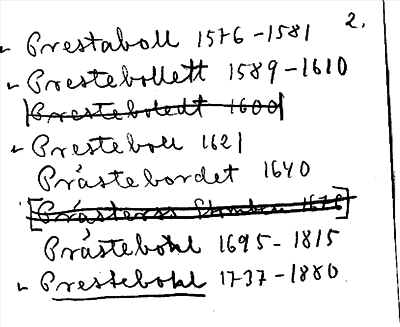 2.
Prestaboll 1576-1581
Prestebollett 1589-1610
Presteboledt 1600
Presteboll 1621
Prästebordet 1640
1676
Prästebohl 1695-1815
Prestebohl 1737-1880